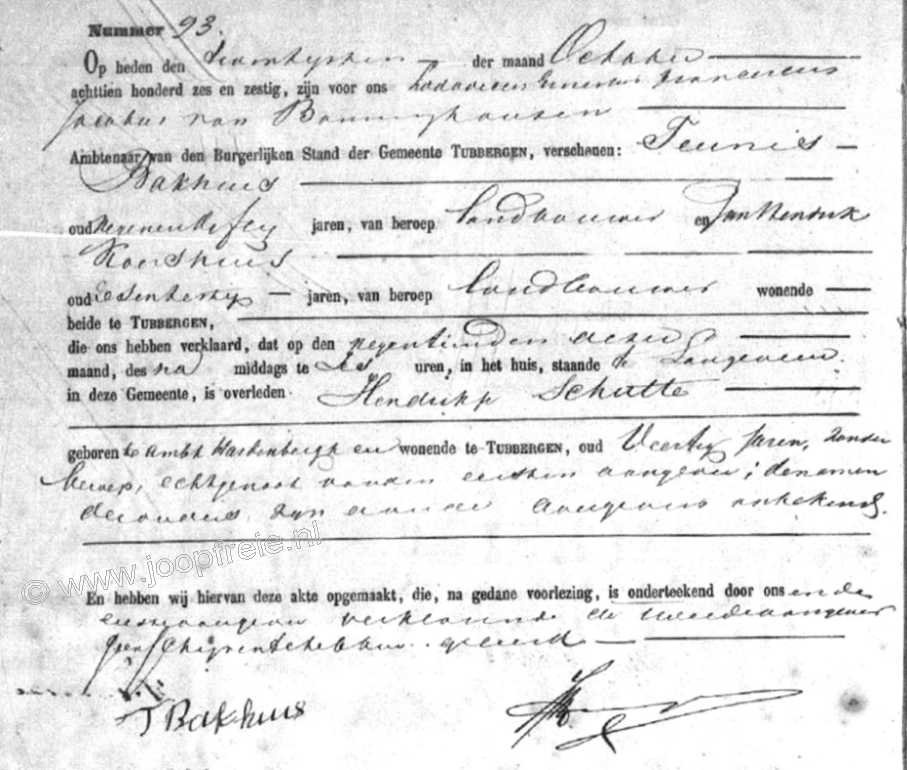 Nummer 93.
Op heden den Twintigsten der maand October
achttien honderd zes en zestig, zijn voor ons Ludovicus Franciscus
Jacobus van Bonninghausen
Ambtenaar van den Burgerlijken Stand der Gemeente TUBBERGEN, verschenen: Teunis
Bakhuis
oud jaren, van beroep landbouwer en Jan Hendrik
Koershuis
oud jaren, van beroep landbouwer wonende
beide te TUBBERGEN,
die ons hebben verklaard, dat op den negentienden dezer
maand, des na middags te zes uren, in het huis, staande te Langeveen
in deze Gemeente, is overleden Hendrikje Schutte
geboren te Ambt Hardenbergh en wonende te TUBBERGEN, oud Veertig jaren, zonder
beroep, echtgenoot van den eersten aangever; de namen
der ouders zijn aan de aangevers onbekend.
© www.joopfreie.nl
En hebben wij hiervan deze akte opgemaakt, die, na gedane voorlezing, is onderteekend door ons en de
eerste aangever verklarende de tweede aangever
geen schrijven te hebben geleerd
T Bakhuis